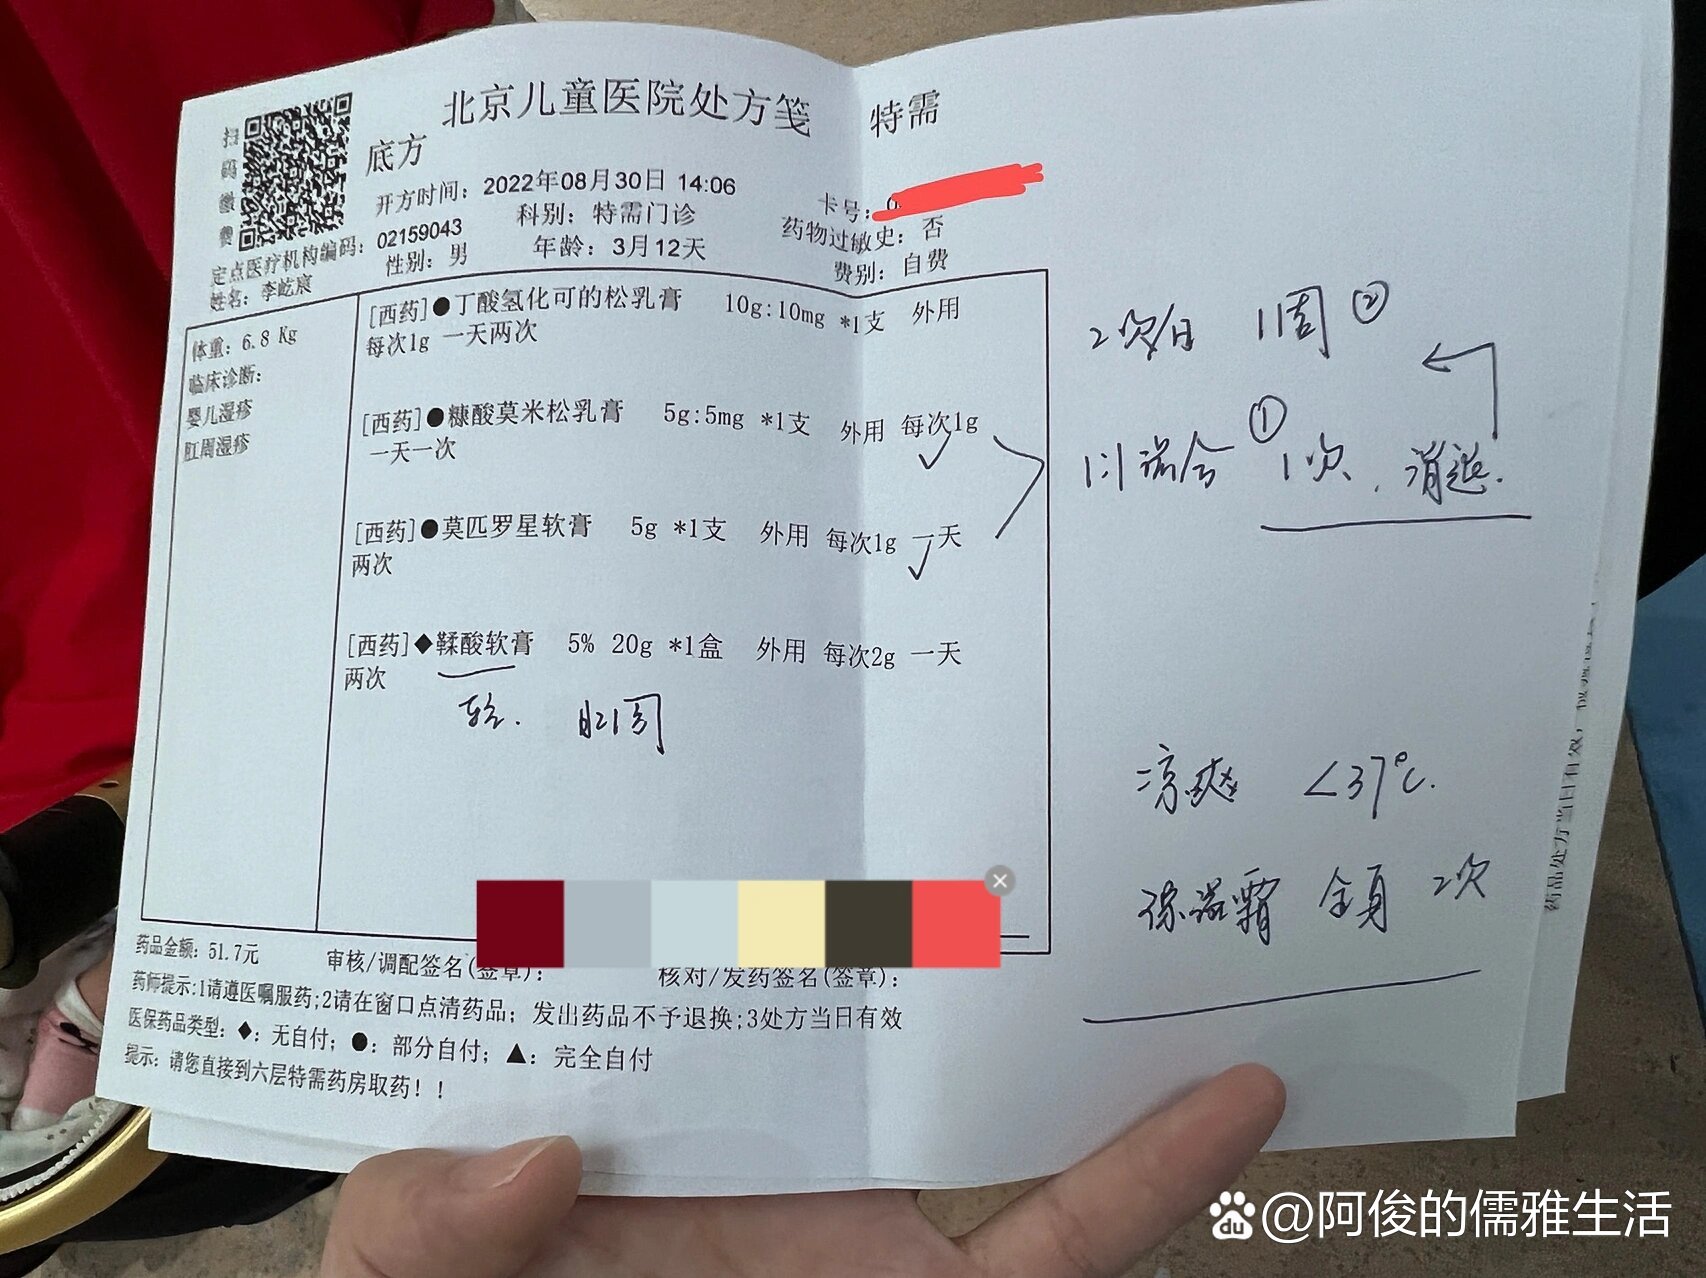 北京儿童医院处方笺 特需
扫码缴费
底方
开方时间: 2022年08月30日 14:06
卡号:
定点医疗机构编码: 02159043 科别: 特需门诊 药物过敏史: 否
姓名: 李屹宸 性别: 男 年龄: 3月12天 费别: 自费
体重: 6.8 Kg
临床诊断:
婴儿湿疹
肛周湿疹
[西药]●丁酸氢化可的松乳膏 10g:10mg *1支 外用
每次1g 一天两次
[西药]●糠酸莫米松乳膏 5g:5mg *1支 外用 每次1g
一天一次
[西药]●莫匹罗星软膏 5g *1支 外用 每次1g 一天
两次
[西药]◆鞣酸软膏 5% 20g *1盒 外用 每次2g 一天
两次
肛周
2次/日 1周 ②
①
1:1混合 1次, 消退.
凉爽 <37℃.
保湿霜 全身 2次
药品金额: 51.7元 审核/调配签名(签章): 核对/发药签名(签章):
药师提示:1请遵医嘱服药;2请在窗口点清药品; 发出药品不予退换;3处方当日有效
医保药品类型: ◆: 无自付; ●: 部分自付; ▲: 完全自付
提示: 请您直接到六层特需药房取药!!
药品处方当日有效,
du @阿俊的儒雅生活